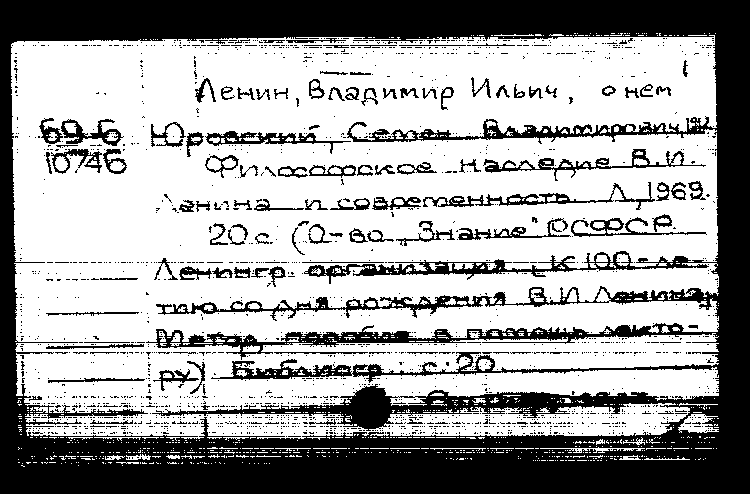 1
Ленин, Владимир Ильич, о нем
69-6 Юровский, Семен Владимирович,
10746 Философское наследие В.И.
Ленина и современность. Л., 1969.
20 с. (О-во „Знание" РСФСР
Ленингр. организация. К 100-ле-
тию со дня рождения В.И. Ленина.
Метод. пособие в помощь лекто-
ру) Библиогр.: с. 20